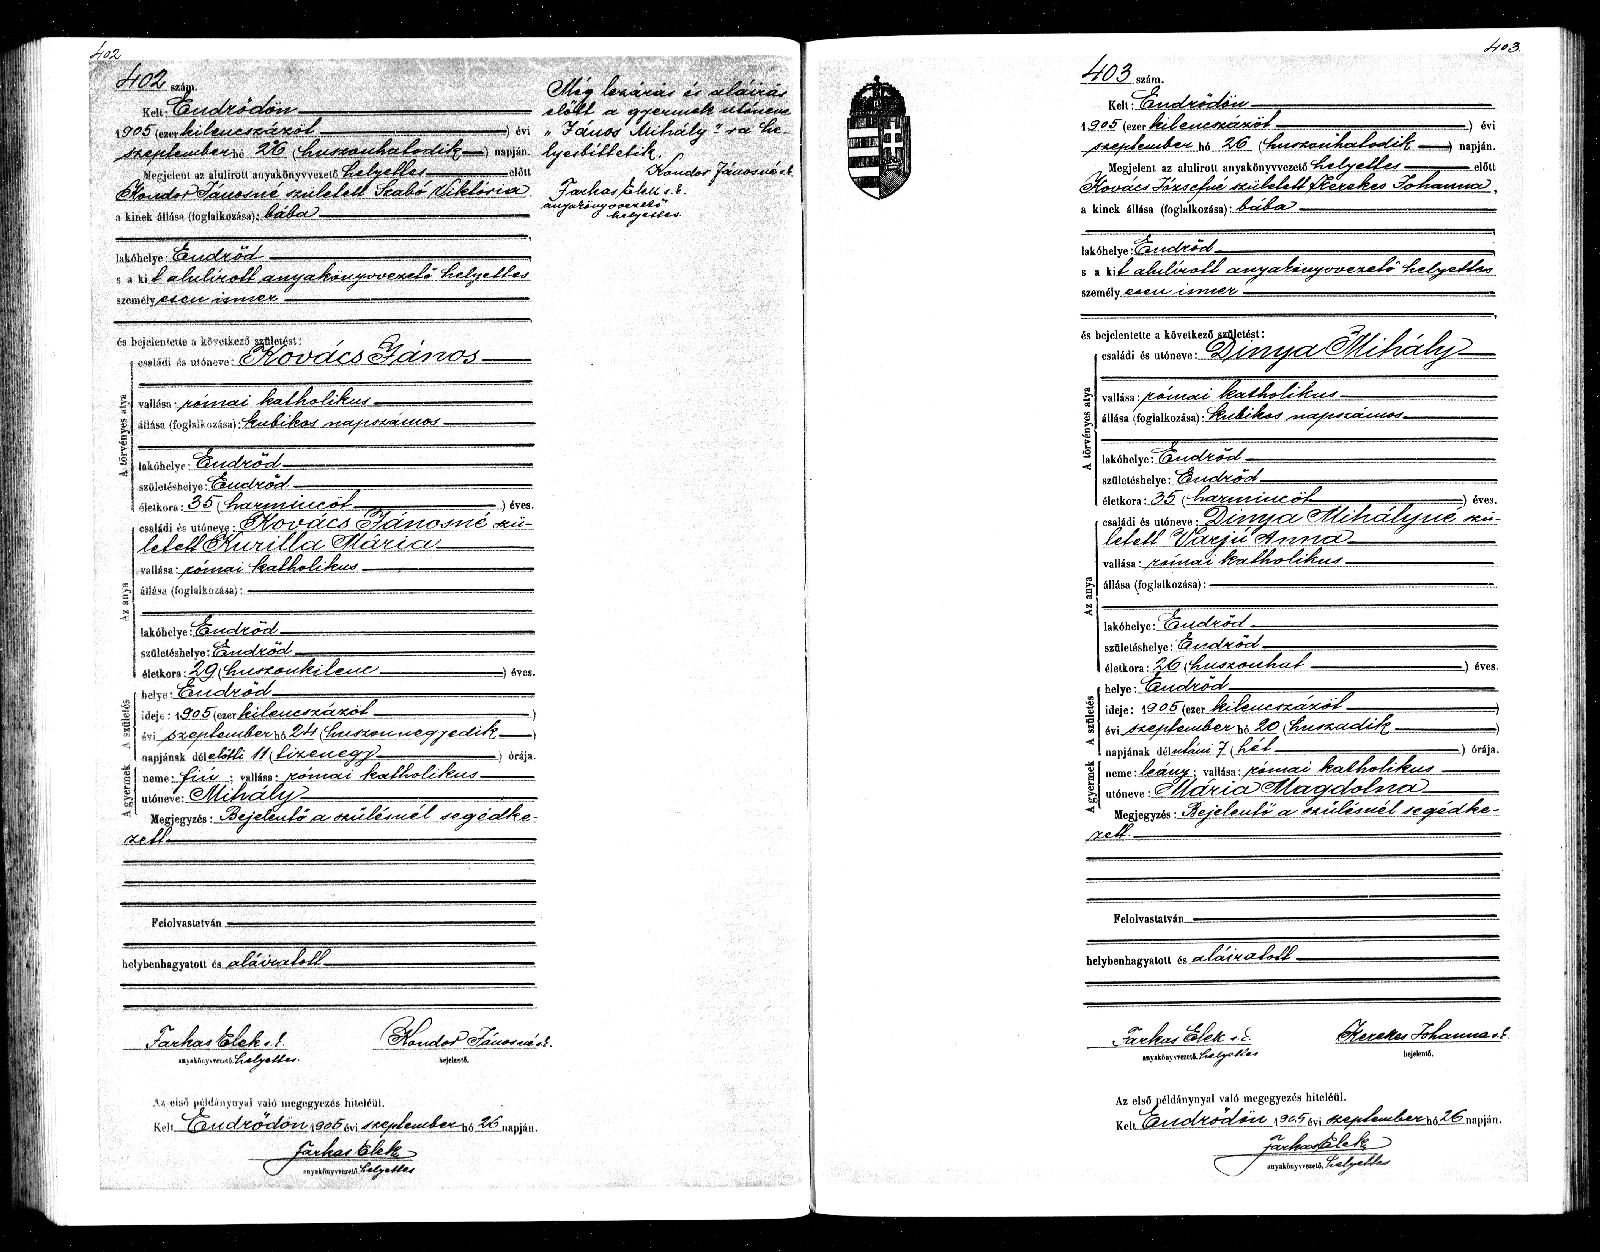 402
402 szám.
Kelt: Endrődön
1905 (ezer kilencszázöt) évi
szeptember hó 26 (huszonhatodik) napján.
Megjelent az alulirott anyakönyvvezető helyettes előtt
Kondor Jánosné született Szabó Viktória
a kinek állása (foglalkozása): bába
lakóhelye: Endrőd
s a kit alulírott anyakönyvvezető helyettes
személyesen ismer
és bejelentette a következő születést:
A törvényes atya
családi és utóneve: Kovács János
vallása: római katholikus
állása (foglalkozása): kubikos napszámos
lakóhelye: Endrőd
születéshelye: Endrőd
életkora: 35 (harmincöt) éves.
Az anya
családi és utóneve: Kovács Jánosné szü-
letett Kurilla Mária
vallása: római katholikus
állása (foglalkozása):
lakóhelye: Endrőd
születéshelye: Endrőd
életkora: 29 (huszonkilenc) éves.
A születés
helye: Endrőd
ideje: 1905 (ezer kilencszázöt)
évi szeptember hó 24 (huszonnegyedik)
napjának délelőtti 11 (tizenegy) órája.
A gyermek
neme: fiú; vallása: római katholikus
utóneve: Mihály
Megjegyzés: Bejelentő a szülésnél segédke-
zett
Felolvastatván
helybenhagyatott és aláiratott
Farkas Elek s.k. Kondor Jánosné s.k.
anyakönyvvezető helyettes bejelentő.
Az első példánynyal való megegyezés hiteléül.
Kelt Endrődön 1905 évi szeptember hó 26 napján.
Farkas Elek
anyakönyvvezető helyettes
Még lezárás és aláírás
előtt a gyermek utóneve
„János Mihály"-ra he-
lyesbíttetik.
Kondor Jánosné s.k.
Farkas Elek s.k.
anyakönyvvezető
helyettes
403
403 szám.
Kelt: Endrődön
1905 (ezer kilencszázöt) évi
szeptember hó 26 (huszonhatodik) napján.
Megjelent az alulirott anyakönyvvezető helyettes előtt
Kovács Józsefné született Kerekes Johanna,
a kinek állása (foglalkozása): bába
lakóhelye: Endrőd
s a kit alulírott anyakönyvvezető helyettes
személyesen ismer
és bejelentette a következő születést:
A törvényes atya
családi és utóneve: Dinya Mihály
vallása: római katholikus
állása (foglalkozása): kubikos napszámos
lakóhelye: Endrőd
születéshelye: Endrőd
életkora: 35 (harmincöt) éves.
Az anya
családi és utóneve: Dinya Mihályné szü-
letett Varjú Anna
vallása: római katholikus
állása (foglalkozása):
lakóhelye: Endrőd
születéshelye: Endrőd
életkora: 26 (huszonhat) éves.
A születés
helye: Endrőd
ideje: 1905 (ezer kilencszázöt)
évi szeptember hó 20 (huszadik)
napjának délutáni 7 (hét) órája.
A gyermek
neme: leány; vallása: római katholikus
utóneve: Mária Magdolna
Megjegyzés: Bejelentő a szülésnél segédke-
zett
Felolvastatván
helybenhagyatott és aláiratott
Farkas Elek s.k. Kerekes Johanna s.k.
anyakönyvvezető helyettes bejelentő.
Az első példánynyal való megegyezés hiteléül.
Kelt Endrődön 1905 évi szeptember hó 26 napján.
Farkas Elek
anyakönyvvezető helyettes